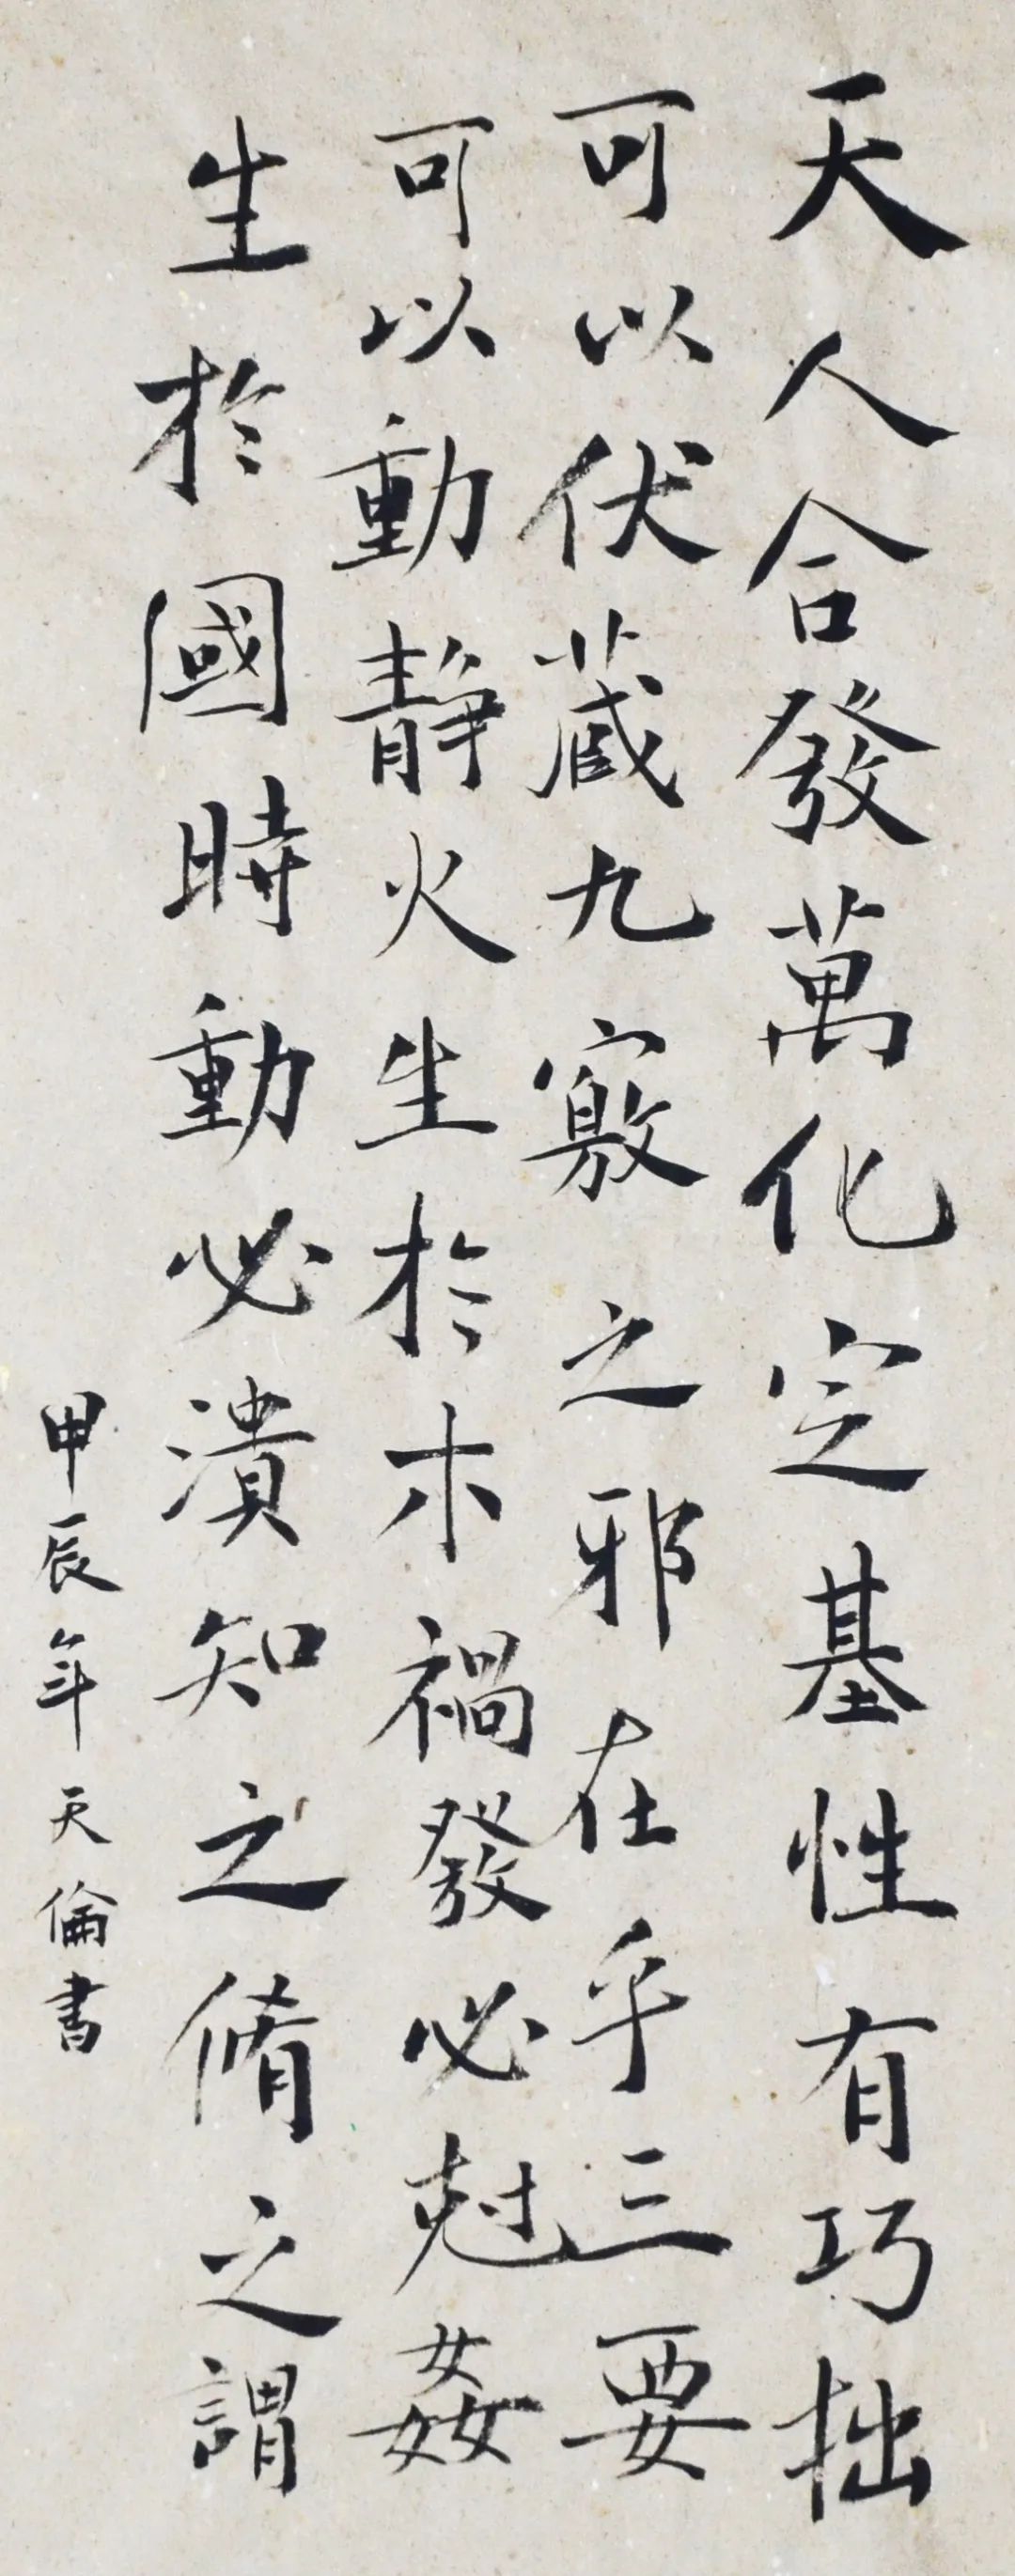 天人合發萬化定基性有巧拙
可以伏藏九竅之邪在乎三要
可以動靜火生於木禍發必尅姦
生於國時動必潰知之脩之謂
甲辰年天倫書